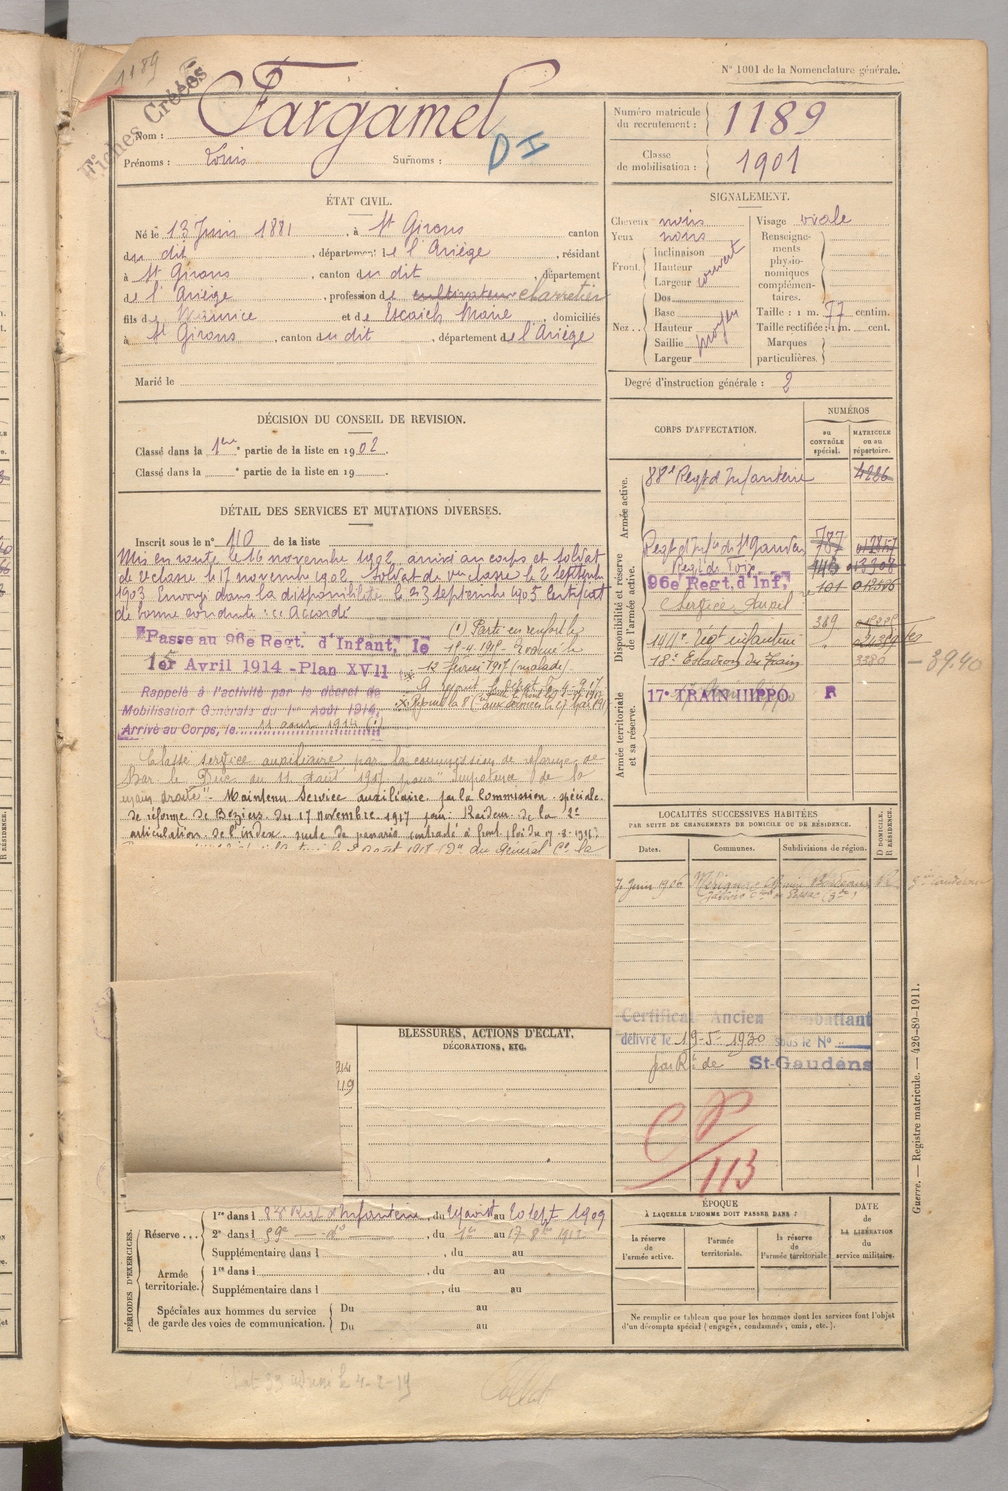 1189
Fiches Créées
N° 1001 de la Nomenclature générale.
Nom : Fargamel
Prénoms : Louis Surnoms :
DI
Numéro matricule du recrutement : 1189
Classe de mobilisation : 1901
ÉTAT CIVIL.
Né le 13 Juin 1881, à St Girons canton
du dit, département de l'Ariège, résidant
à St Girons, canton du dit, département
de l'Ariège, profession de cultivateur charretier
fils de Maurice et de Escaich Marie, domiciliés
à St Girons, canton du dit, département de l'Ariège
Marié le
SIGNALEMENT.
Cheveux noirs
Yeux noirs
Front Inclinaison
Hauteur
Largeur
couvert
Nez Dos
Base
Hauteur
Saillie
Largeur
moyen
Visage ovale
Renseignements physionomiques complémentaires.
Taille : 1 m. 77 centim.
Taille rectifiée : 1 m. cent.
Marques particulières.
Degré d'instruction générale : 2
DÉCISION DU CONSEIL DE REVISION.
Classé dans la 1ere partie de la liste en 1902
Classé dans la e partie de la liste en 19
CORPS D'AFFECTATION.
NUMÉROS
au CONTRÔLE spécial.
MATRICULE ou au répertoire.
Armée active.
88e Regt d'Infanterie 4286
Disponibilité et réserve de l'armée active.
Regt d'Inf. de St Gaudens 787
Regt de Foix
96e Regt. d'Inf.
Service Auxil
389
144e Régt infanterie
18e Escadron du Train 3380
39.40
Armée territoriale et sa réserve.
17e TRAIN HIPPO. R
DÉTAIL DES SERVICES ET MUTATIONS DIVERSES.
Inscrit sous le n° 110 de la liste
Mis en route le 16 novembre 1902, arrivé au corps et soldat
de 2e classe le 17 novembre 1902. Soldat de 1ere classe le 2 septembre
1903 Envoyé dans la disponibilité le 23 septembre 1905 Certificat
de bonne conduite : "Accordé"
Passé au 96e Regt. d'Infant. le
1er Avril 1914 - Plan XVII
(1) Parti en renfort le
19-4-1915 - Evacué le
12 février 1917 (malade)
Rappelé à l'activité par le décret de
Mobilisation Générale du 1er Août 1914,
Arrivé au Corps, le 11 août 1914 (1)
Classé service auxiliaire par la commission de réforme de
Bar le Duc du 11 Août 1917 pour "impotence de la
main droite". Maintenu Service auxiliaire par la Commission spéciale
de réforme de Béziers du 17 novembre 1917 pour : Raideur de la 2e
articulation de l'index suite de panaris contracté à front (loi du
LOCALITÉS SUCCESSIVES HABITÉES
PAR SUITE DE CHANGEMENTS DE DOMICILE OU DE RÉSIDENCE.
Dates.
Communes.
Subdivisions de région.
D DOMICILE. R RÉSIDENCE.
7 Juin 1906 Mérignac Bordeaux R
Certificat Ancien Combattant
délivré le 19-5-1930 sous le N°
par R. de St-Gaudens
CP/113
BLESSURES, ACTIONS D'ÉCLAT,
DÉCORATIONS, ETC.
PÉRIODES D'EXERCICES.
Réserve 1re dans l 88e Regt d'Infanterie, du 29 août au 20 sept 1909
2e dans l 59e d°, du 1er au 17 8bre 1912
Supplémentaire dans l, du au
Armée territoriale. 1re dans l, du au
Supplémentaire dans l, du au
Spéciales aux hommes du service de garde des voies de communication. Du au
Du au
ÉPOQUE
À LAQUELLE L'HOMME DOIT PASSER DANS :
la réserve de l'armée active.
l'armée territoriale.
la réserve de l'armée territoriale
DATE de LA LIBÉRATION du service militaire.
Ne remplir ce tableau que pour les hommes dont les services font l'objet
d'un décompte spécial (engagés, condamnés, omis, etc.).
Guerre. — Registre matricule. — 426-89-1911.